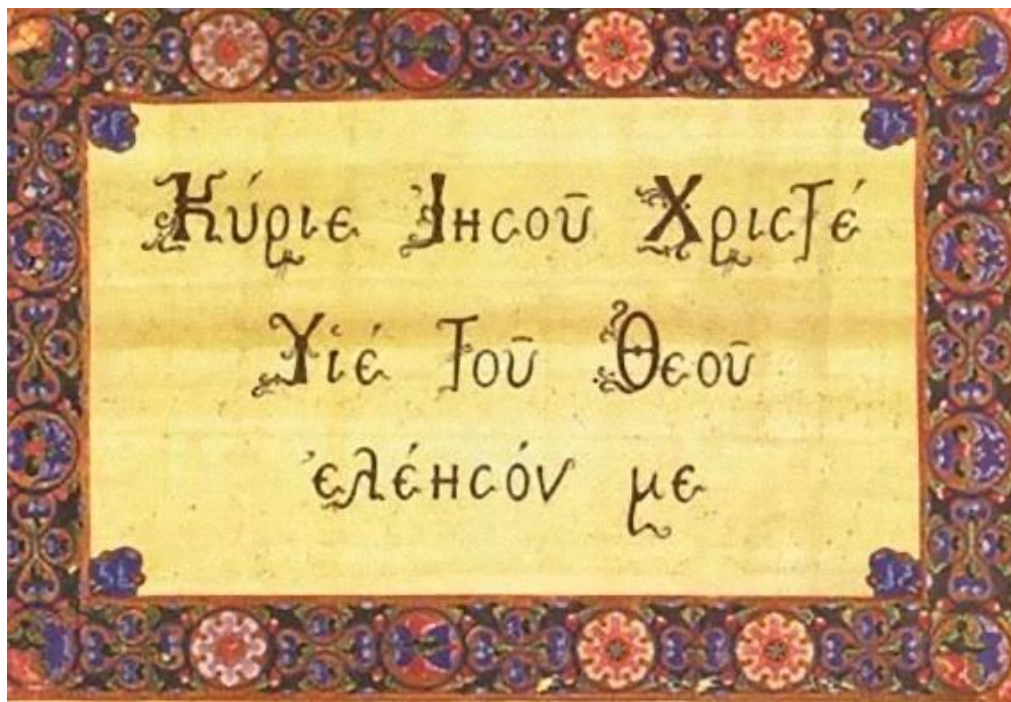 Κύριε Ιησοῦ Χριστέ
Υἱέ τοῦ Θεοῦ
ἐλέησόν με